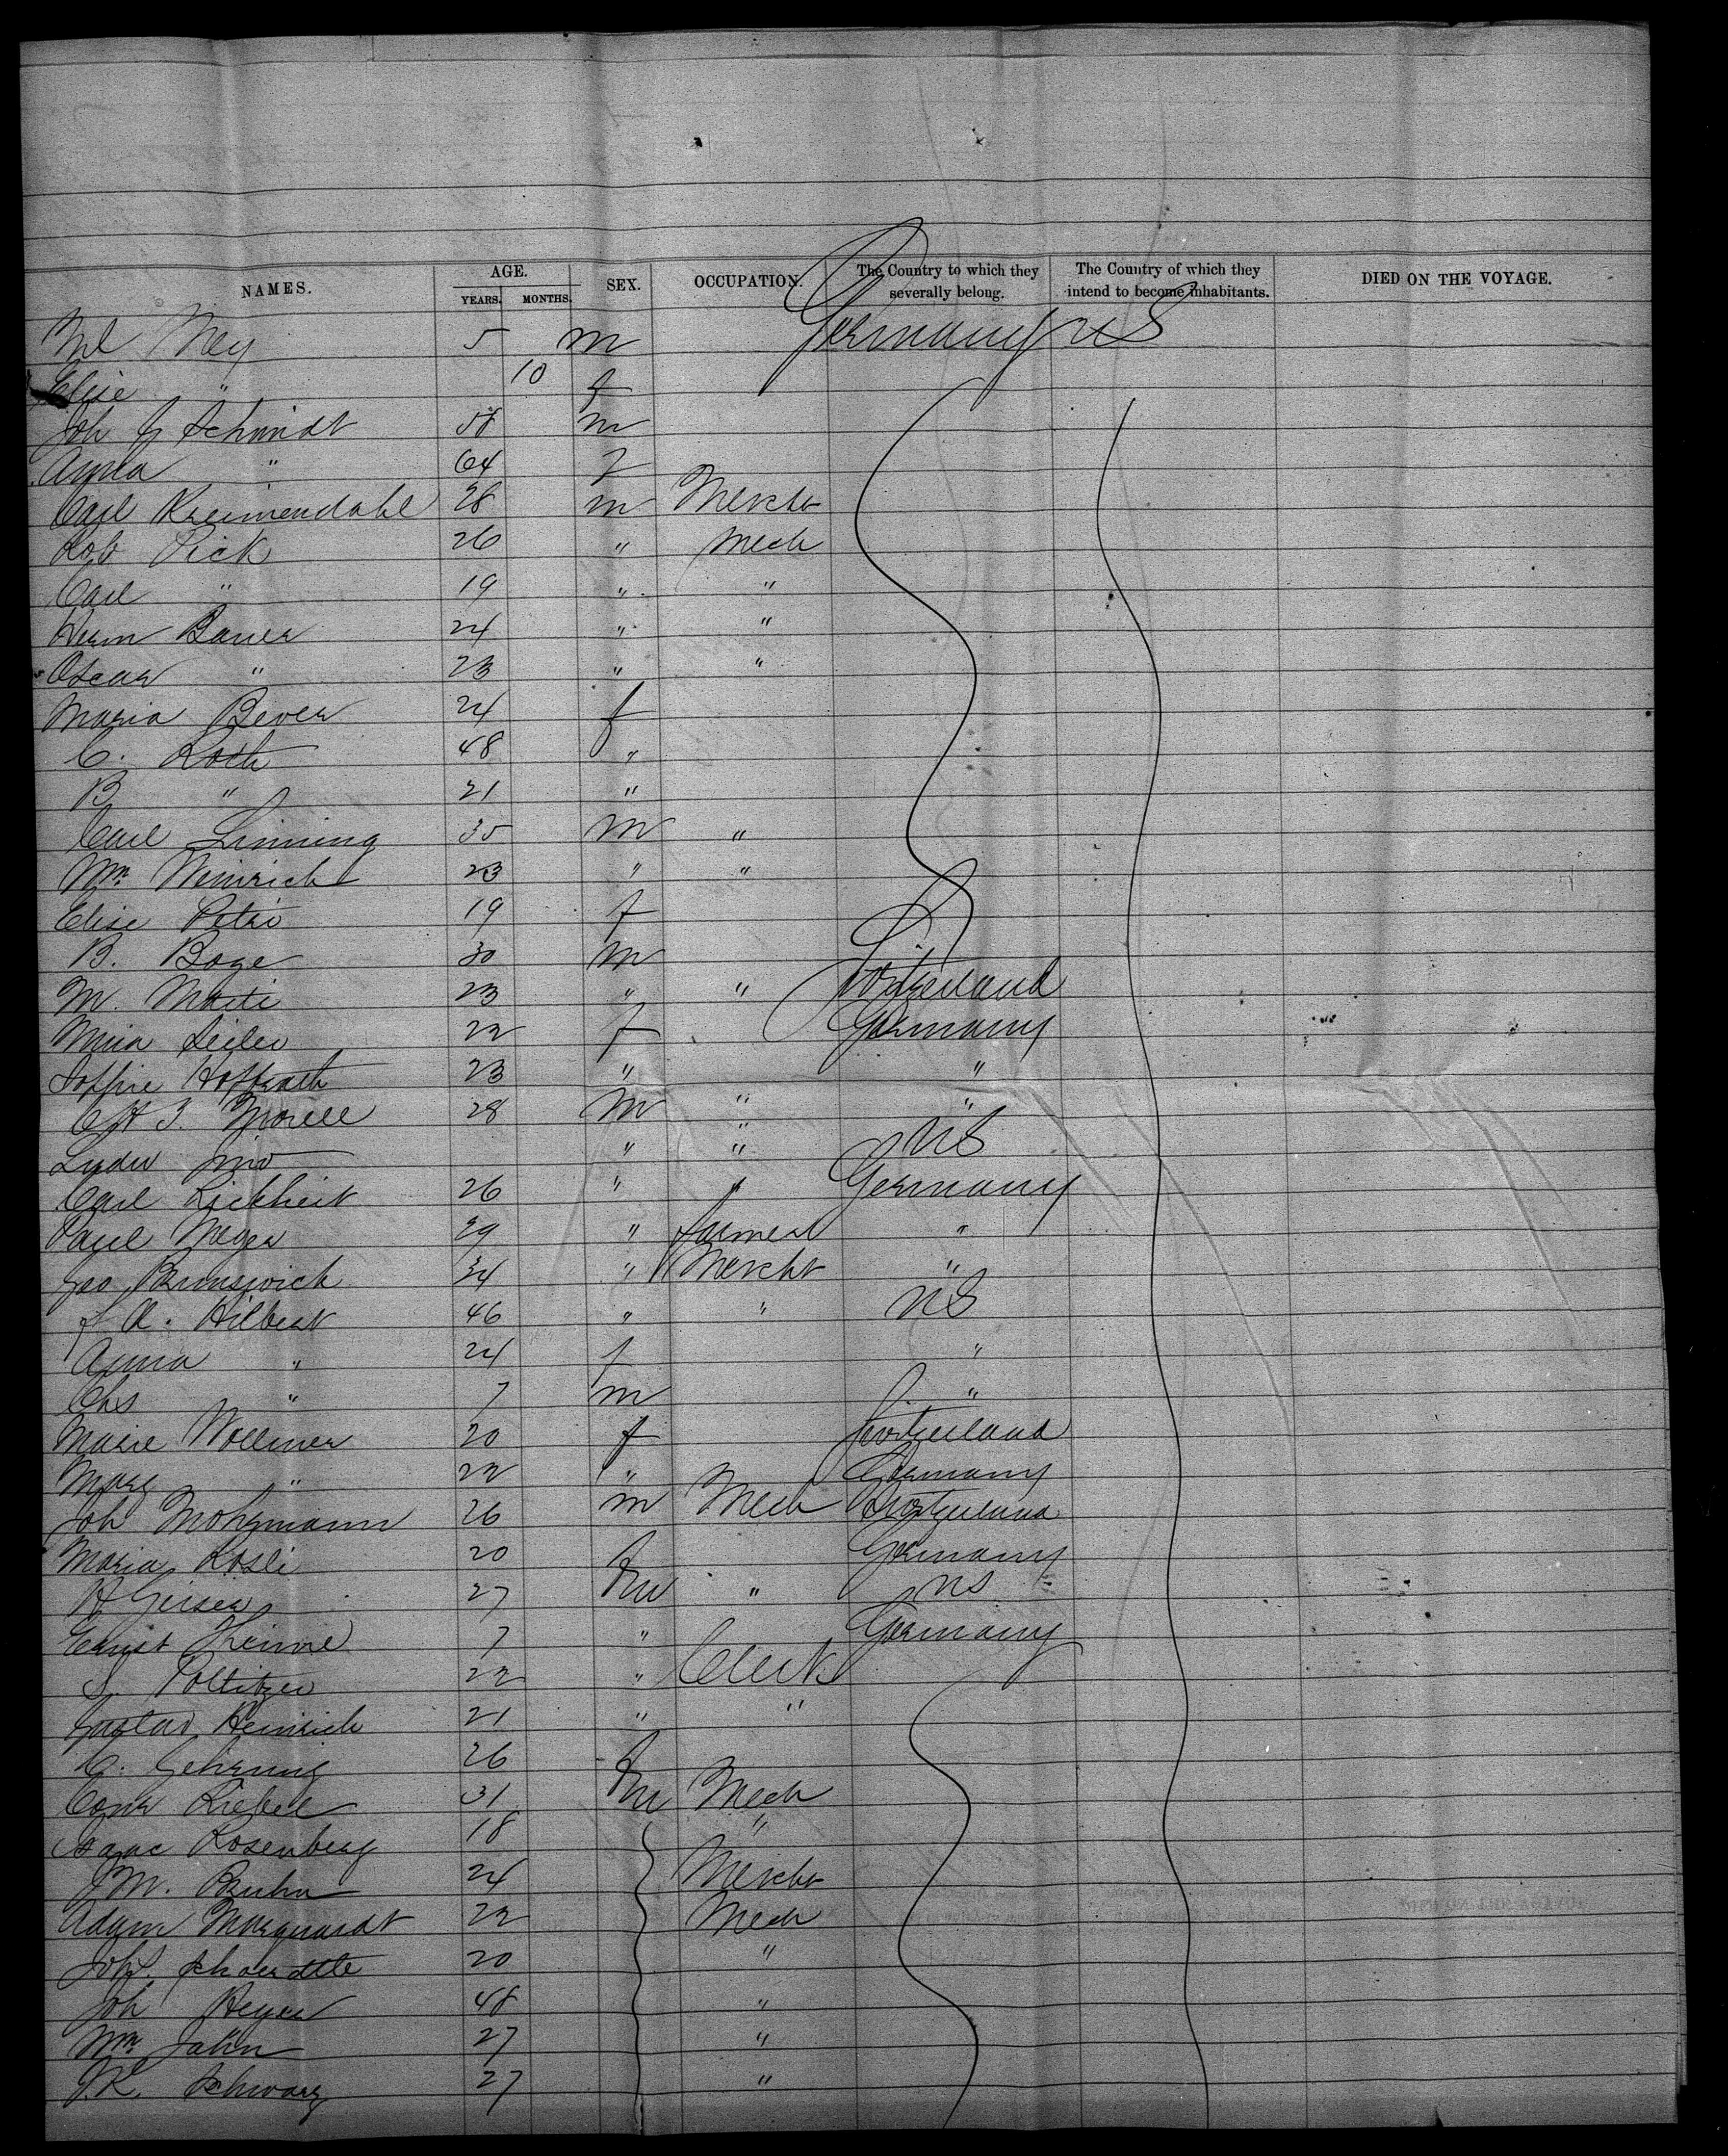 NAMES. AGE. SEX. OCCUPATION. The Country to which they severally belong. The Country of which they intend to become inhabitants. DIED ON THE VOYAGE.
YEARS. MONTHS.
Ml Mey 5 m Germany US
Elise " 10 f
Joh G Schmidt 58 m
Anna " 64 f
Carl Kreimendahl 28 m Mercht
Rob Pick 26 " Mech
Carl " 19 " "
Herm Bauer 24 " "
Oscar " 23 " "
Maria Bever 24 f
C. Roth 48 "
B " 21 "
Carl Linning 35 m "
Wm Weinrich 23 " "
Elise Petri 19 f
B. Boge 30 m
M. 23 " " Switzerland
Mina Seiler 22 f Germany
Soffie Hoffrath 23 " "
28 m " "
" " US
Carl 26 " " Germany
Paul Meyer 29 " farmer "
Geo Brunswick 34 " Mercht "
f A. Hilbert 46 " " US
Anna " 24 f "
Chs " 7 m "
Marie Wollmer 20 f Switzerland
Marg " 22 " Germany
Joh Mohrmann 26 m Mech Switzerland
Maria Rosli 20 f Germany
H Geiser 27 m " US
Ernst 7 " Germany
S. Pollitzer 22 " Clerk
Gustav Heinrich 21 " "
C. Gehrung 26 f
Conr Riebel 31 m Mech
Isaac Rosenberg 18 "
J M. Bruhn 24 Mercht
Adam Marquardt 22 Mech
Joh. 20 "
Joh Heyer 48 "
Wm Jahn 27 "
J.K. Schwarz 27 "